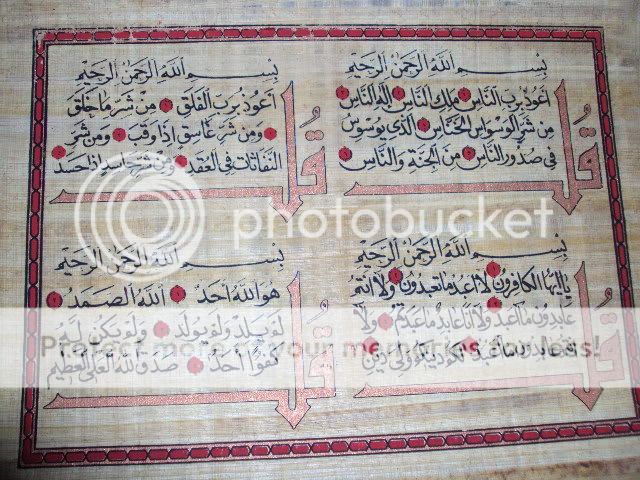 بسم الله الرحمن الرحيم
قل
اعوذ برب الناس ملك الناس اله الناس
من شر الوسواس الخناس الذى يوسوس
فى صدور الناس من الجنة والناس
بسم الله الرحمن الرحيم
قل
اعوذ برب الفلق من شر ما خلق
ومن شر غاسق اذا وقب ومن شر
النفاثات فى العقد ومن شر حاسد اذا حسد
بسم الله الرحمن الرحيم
قل
يا ايها الكافرون لا اعبد ما تعبدون ولا انتم
عابدون ما اعبد ولا انا عابد ما عبدتم ولا
انتم عابدون ما اعبد لكم دينكم ولى دين
بسم الله الرحمن الرحيم
قل
هو الله احد الله الصمد
لم يلد ولم يولد ولم يكن له
كفوا احد صدق الله العلى العظيم
photobucket
Protect more of your memories for less!